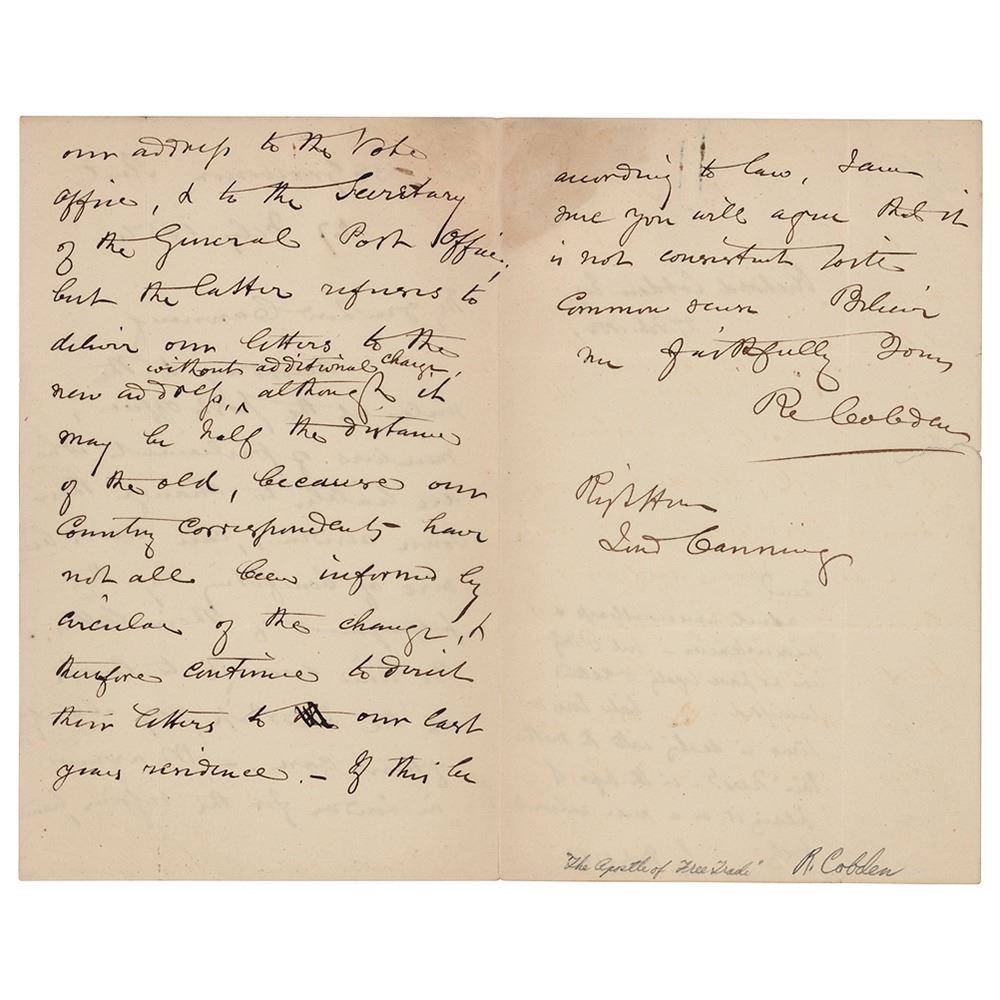 our address to the Vote
Office, & to the Secretary
of the General Post Office,
but the latter refuses to
deliver our letters to the
without additional charge,
new address, ^ although it
may be half the distance
of the old, because our
Country correspondents have
not all been informed by
circular of the change, &
therefore continue to direct
their letters to our last
years residence. – If this be
according to law, I am
sure you will agree that it
is not consistent with
Common sense Believe
me faithfully Yours
Rd Cobden
Right Hon
Lord Canning
"The Apostle of Free Trade" R. Cobden